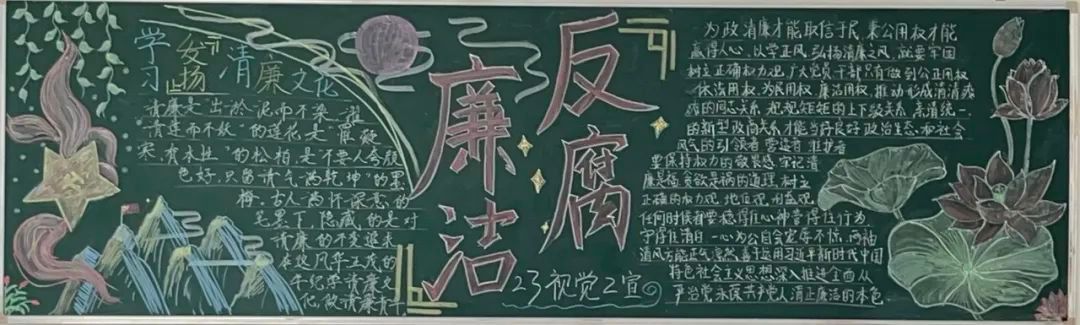 学习发扬清廉文化
清廉是"出於泥而不染,濯
清莲而不妖"的莲花是"岸裂
寒,有本性"的松柏,是"不要人夸颜
色好,只留清气满乾坤"的墨
梅。古人高怀深意的
笔墨下隐藏的是对
清廉的不变追求
在这风华正茂的
年纪学清廉文
化,做清廉青年
廉洁
反腐
23视觉2宣
为政清廉才能取信于民,秉公用权才能
赢得人心,以学正风,弘扬清廉之风,就要牢固
树立正确权力观,广大党员干部只有做到公正用权
依法用权,为民用权,廉洁用权,推动形成清清爽
爽的同志关系,规规矩矩的上下级关系,亲清统一
的新型政商关系才能当好良好政治生态,和社会
风气的引领者 营造者 维护者
要保持权力的敬畏感,牢记清
廉是福,贪欲是祸的道理,树立
正确的权力观,地位观,利益观,
任何时候都要稳得住心神管得住行为
守得住清白,一心为公自会宠辱不惊,两袖
清风方能正气凛然,善于运用习近平新时代中国
特色社会主义思想深入推进全面从
严治党,永葆共产党人清正廉洁的本色